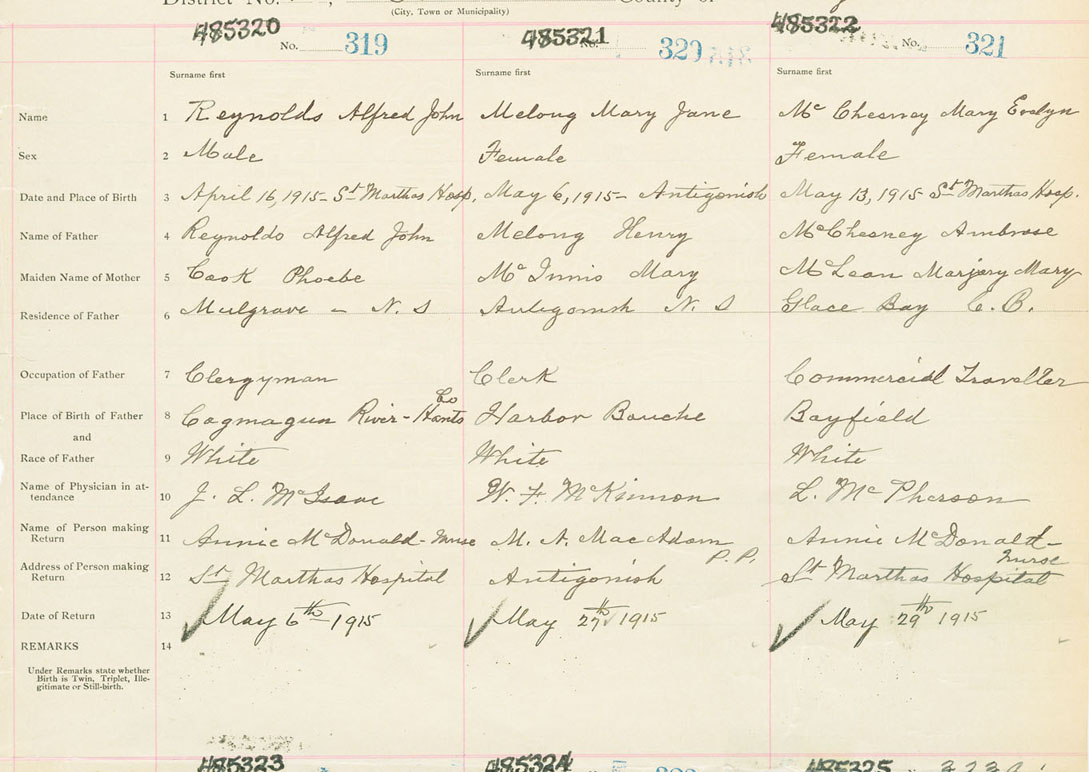 District No. County of
(City, Town or Municipality)
485320 485321 485322
No. 319 No. 320 No. 321
Surname first Surname first Surname first
Name 1 Reynolds Alfred John Melong Mary Jane McChesney Mary Evelyn
Sex 2 Male Female Female
Date and Place of Birth 3 April 16, 1915 - St Marthas Hosp. May 6, 1915 - Antigonish May 13, 1915 St Marthas Hosp.
Name of Father 4 Reynolds Alfred John Melong Henry McChesney Ambrose
Maiden Name of Mother 5 Cook Phoebe McInnis Mary McLean Marjory Mary
Residence of Father 6 Mulgrave - N. S Antigonish N. S Glace Bay C. B.
Occupation of Father 7 Clergyman Clerk Commercial Traveller
Place of Birth of Father 8 Cogmagun River - Hants Co Harbor Bouche Bayfield
and
Race of Father 9 White White White
Name of Physician in at-
tendance 10 J. L. McIsaac W. F. McKinnon L. McPherson
Name of Person making
Return 11 Annie McDonald - Nurse M. A. MacAdam P. P. Annie McDonald - nurse
Address of Person making
Return 12 St Marthas Hospital Antigonish St Marthas Hospital
Date of Return 13 May 6th - 1915 May 27th 1915 May 29th 1915
REMARKS 14
Under Remarks state whether
Birth is Twin, Triplet, Ille-
gitimate or Still-birth.
485323 485324 485325